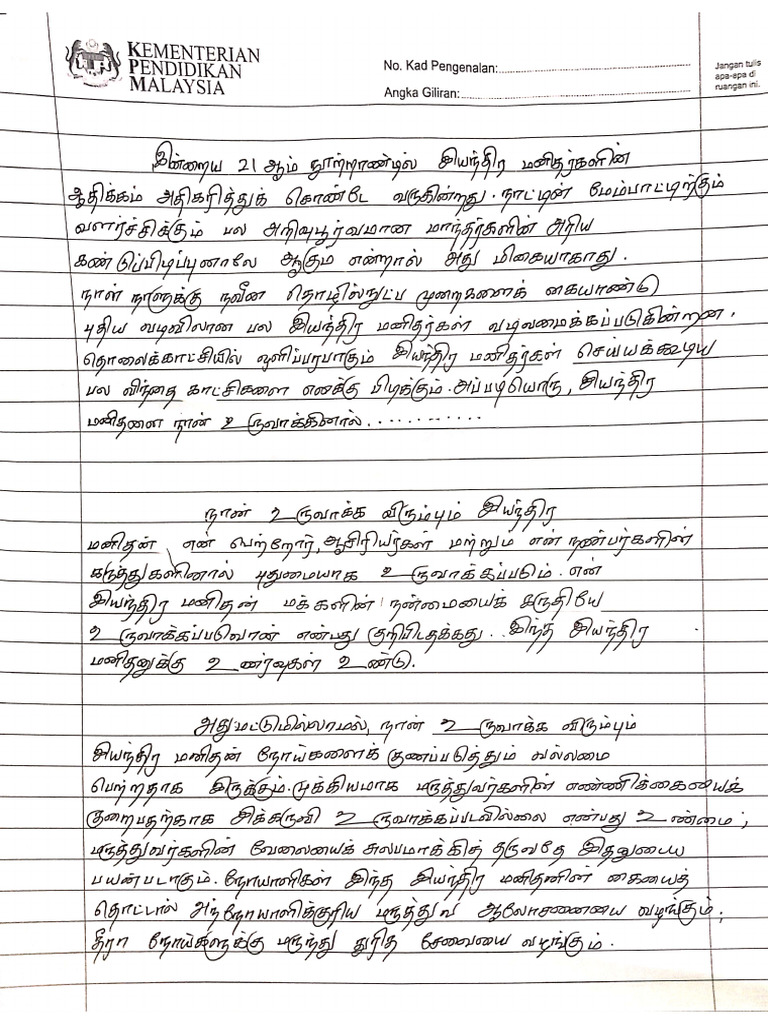 KEMENTERIAN
PENDIDIKAN
MALAYSIA
No. Kad Pengenalan:
Angka Giliran:
Jangan tulis
apa-apa di
ruangan ini.
இன்றைய 21 ஆம் நூற்றாண்டில் இயந்திர மனிதர்களின்
ஆதிக்கம் அதிகரித்துக் கொண்டே வருகின்றது. நாட்டின் மேம்பாட்டிற்கும்
வளர்ச்சிக்கும் பல அறிவுபூர்வமான மாந்தர்களின் அரிய
கண்டுப்பிடிப்புனாலே ஆகும் என்றால் அது மிகையாகாது.
நாள் நாளுக்கு நவீன தொழில்நுட்ப முறைகளைக் கையாண்டு
புதிய வடிவிலான பல இயந்திர மனிதர்கள் வடிவமைக்கப்படுகின்றன.
தொலைக்காட்சியில் ஒளிப்பரபாகும் இயந்திர மனிதர்கள் செய்யக்கூடிய
பல விந்தை காட்சிகளை எனக்கு பிடிக்கும். அப்படியொரு, இயந்திர
மனிதனை நான் உருவாக்கினால்.............
நான் உருவாக்க விரும்பும் இயந்திர
மனிதன் என் பெற்றோர், ஆசிரியர்கள் மற்றும் என் நண்பர்களின்
கருத்துகளினால் புதுமையாக உருவாக்கப்படும். என்
இயந்திர மனிதன் மக்களின் நன்மையைக் கருதியே
உருவாக்கப்படுவான் என்பது குறிபிடதக்கது. இந்த இயந்திர
மனிதனுக்கு உணர்வுகள் உண்டு.
அதுமட்டுமில்லாமல், நான் உருவாக்க விரும்பும்
இயந்திர மனிதன் நோய்களைக் குணப்படுத்தும் வல்லமை
பெற்றதாக இருக்கும். முக்கியமாக மருத்துவர்களின் எண்ணிக்கையைக்
குறைபதற்காக அக்கருவி உருவாக்கப்படவில்லை என்பது உண்மை;
மருத்துவர்களின் வேலையைக் சுலபமாக்கித் தருவதே இதனுடைய
பயன்படாகும். நோயாளிகள் இந்த இயந்திர மனிதனின் கையைத்
தொட்டால் அந்நோயாளிக்குரிய மருத்துவ ஆலோசனையை வழங்கும்;
தீரா நோய்களுக்கு மருந்து துரித சேவையை வழங்கும்.